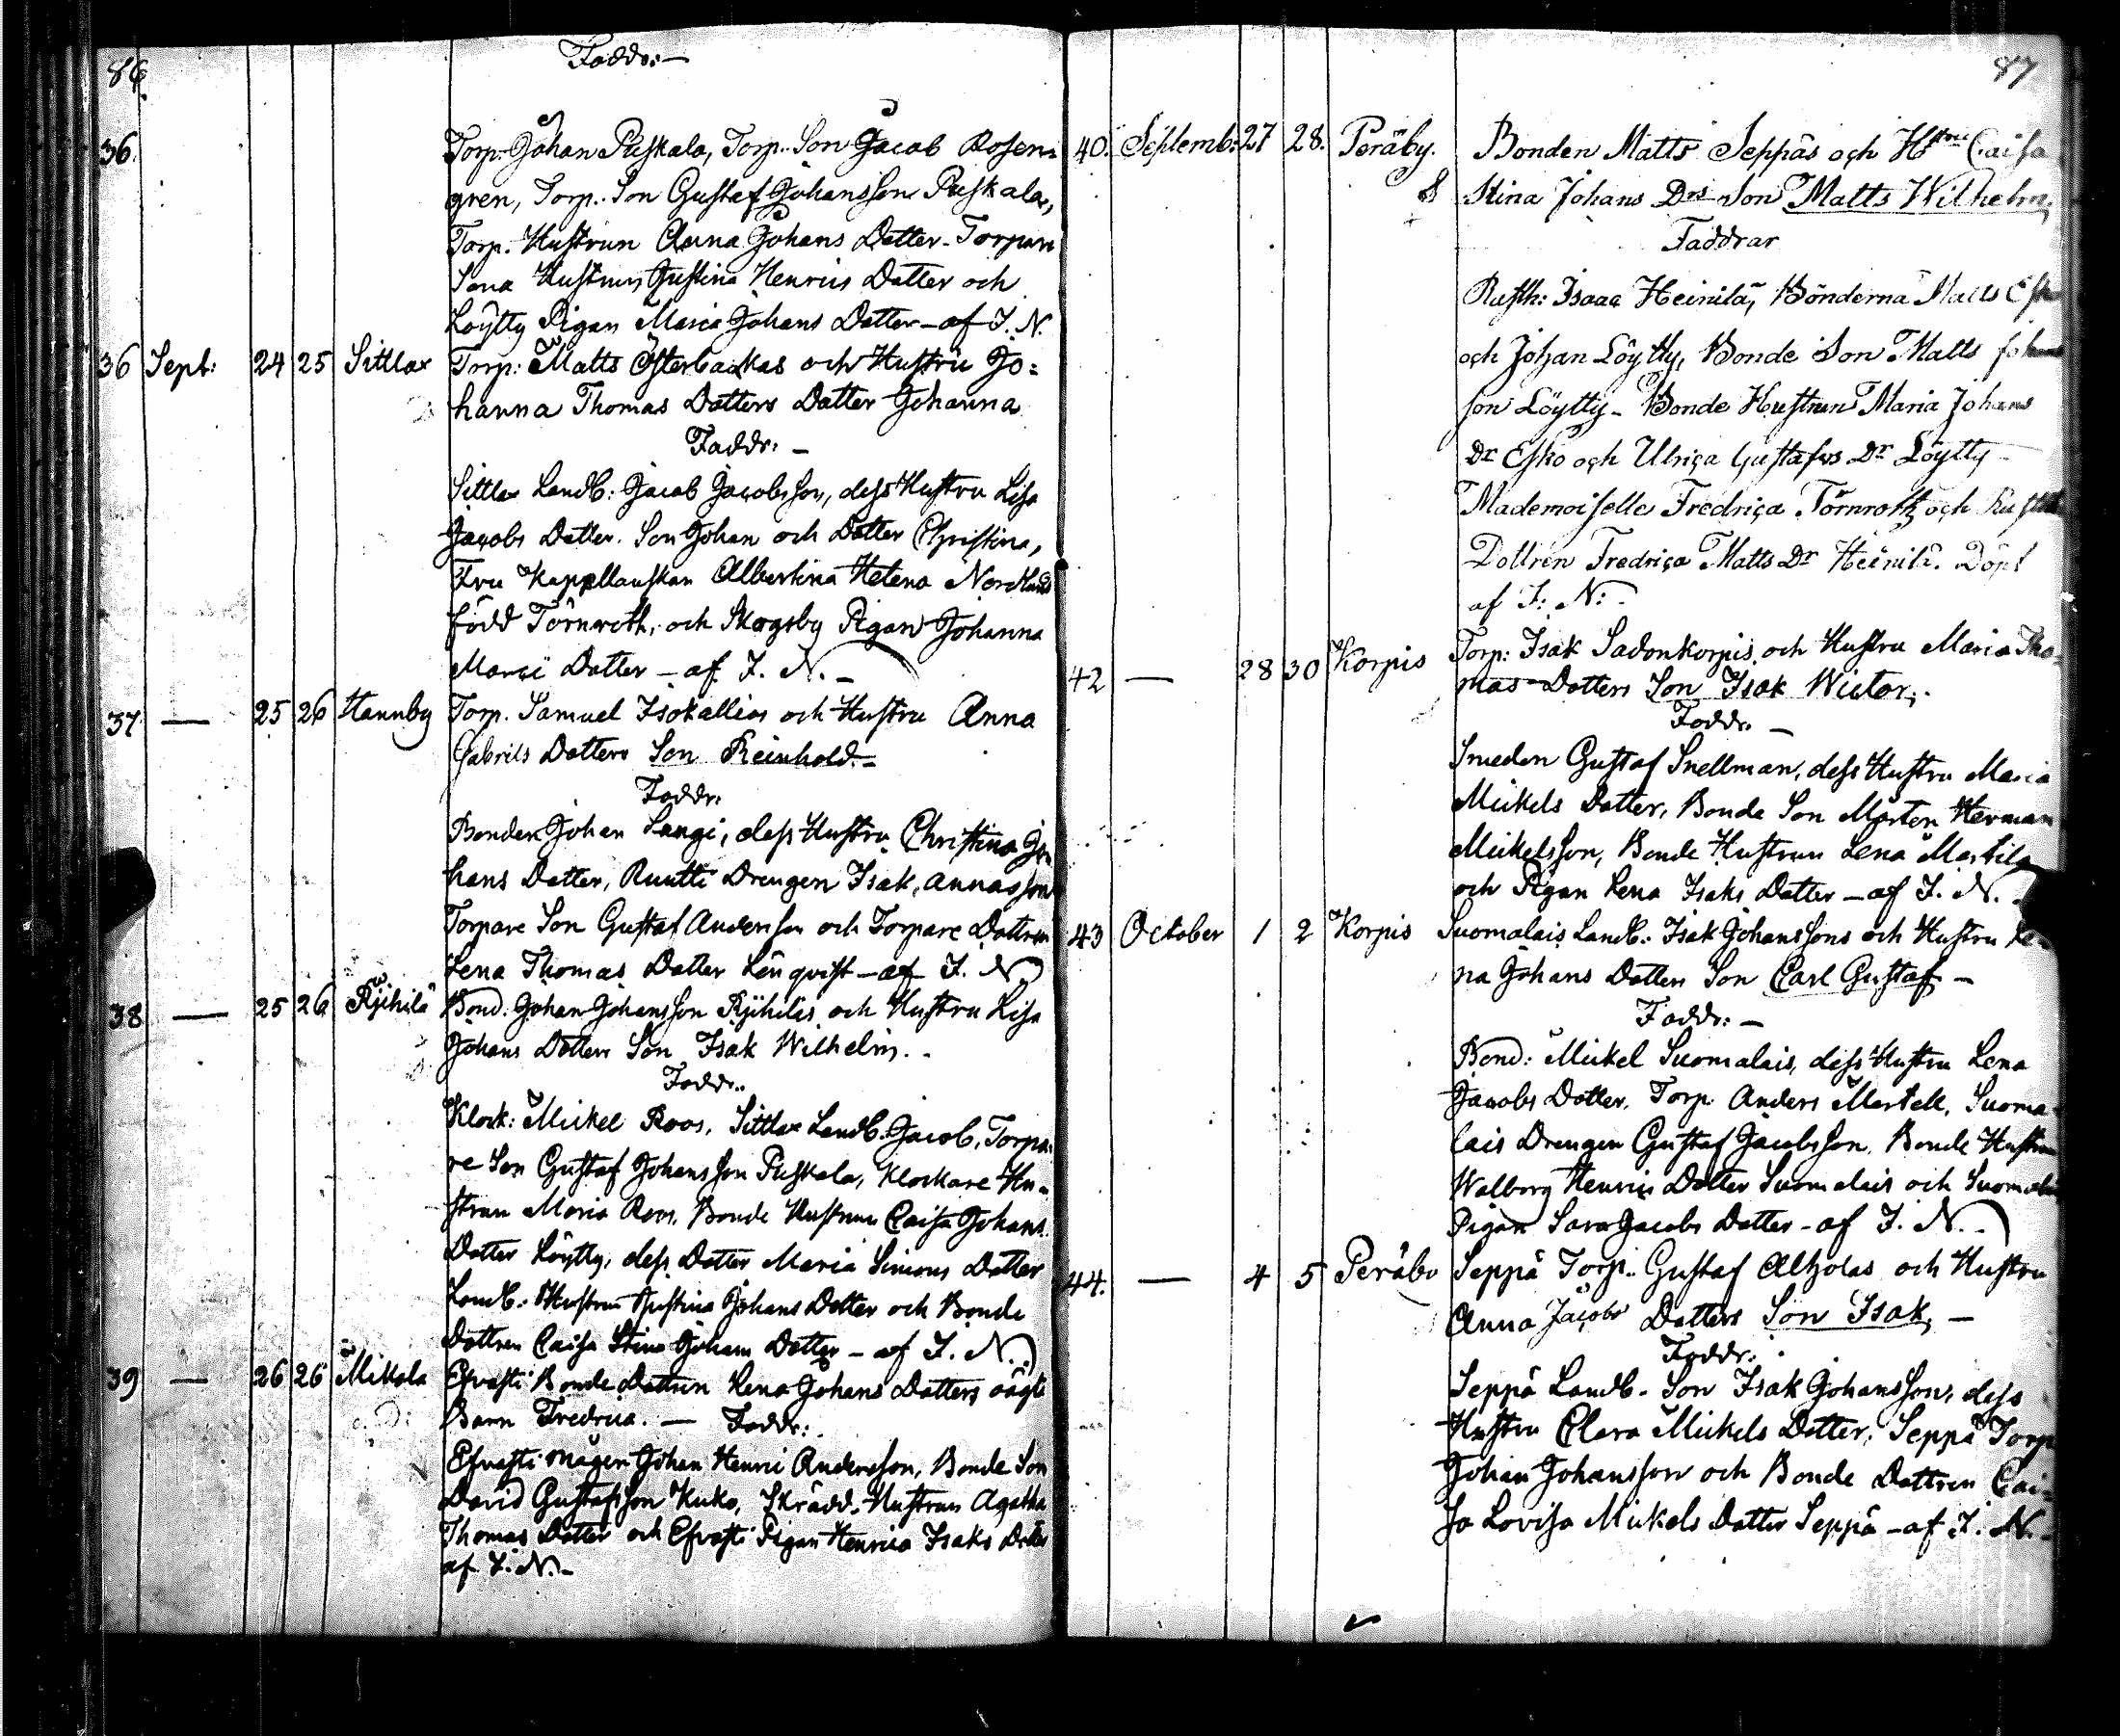 86.
Faddr:—
36. Torp. Johan Puskala, Torp. Son Jacob Rosen=
gren, Torp. Son Gustaf Johansson Puskala,
Torp. Hustrun Anna Johans Dotter - Torpare
Sona Hustrun Gustina Henrics Dotter och
Löytty Pigan Maria Johans Dotter - af J. N.
36 Sept: 24 25 Sittlax Torp: Matts Österbackas och Hustru Jo=
hanna Thomas Dotters Dotter Johanna
Faddr: —
Sittlax Landb: Jacob Jacobsson, dess Hustru Lisa
Jacobs Dotter. Son Johan och Dotter Christina,
Fru Kappellanskan Albertina Helena Nordlund
född Törnroth, och Skogsby Pigan Johanna
Marci Dotter - af J. N. -
37 — 25 26 Hannby Torp. Samuel Isokallios och Hustru Anna
Gabriels Dotters Son Reinhold. -
Faddr:
Bonden Johan Langi, dess Hustru Christina Jo=
hans Dotter, Ruutti Drengen Isak Annasson
Torpare Son Gustaf Andersson och Torpare Dottren
Lena Thomas Dotter Lenqvist - af J. N.
38 — 25 26 Rjihilä Bond. Johan Johansson Rjihiläs och Hustru Lisa
Johans Dotters Son Isak Wilhelm. -
Faddr.
Klock: Mickel Roos, Sittlax Landb. Jacob, Torpa=
re Son Gustaf Johansson Puskala, Klockare Hu=
strun Maria Roos, Bonde Hustrun Caisa Johans
Dotter Löytty, dess Dotter Maria Simons Dotter
Landb: Hustrun Gustina Johans Dotter och Bonde
Dottren Caisa Stina Johans Dotter - af J. N.
39 — 26 26 Mikola Efvasti Bonde Dottren Lena Johans Dotters oägte
Barn Fredrica. — Faddr:
Efvasti mågen Johan Henric Andersson, Bonde Son
David Gustafsson Kuko, Skrädd. Hustrun Agatha
Thomas Dotter och Efvasti Pigan Henrica Isaks Dotter
af J. N. -
87
40. Septemb: 27 28. Peräby. Bonden Matts Seppäs och Hstru Caisa
Stina Johans Drs Son Matts Wilhelm,
Faddrar
Rusth: Isaac Heinilä, Bönderna Matts Esko
och Johan Löytty, Bonde Son Matts Johans
son Löytty - Bonde Hustrun Maria Johans
Dr Esko och Ulrica Gustafvs Dr Löytty -
Mademoiselle Fredrica Törnroth och Rusth
Dottren Fredrica Matts Dr Heinilä. Döpt
af J: N:
42 — 28 30 Korpis Torp: Isak Sadonkorpis och Hustru Maria Tho=
mas Dotters Son Isak Wictor.
Faddr. —
Smeden Gustaf Snellman, dess Hustru Maria
Mickels Dotter, Bonde Son Mårten Herman
Mickelsson, Bonde Hustrun Lena Martila
och Pigan Lena Isaks Dotter - af J. N.
43 October 1 2 Korpis Suomalais Landb: Isak Johanssons och Hustru Le=
na Johans Dotters Son Carl Gustaf -
Faddr: —
Bond: Mickel Suomalais, dess Hustru Lena
Jacobs Dotter, Torp Anders Martell, Suoma=
lais Drengen Gustaf Jacobsson, Bonde Hustrun
Walborg Henrics Dotter Suomalais och Suomalais
Pigan Sara Jacobs Dotter - af J. N. -
44. — 4 5 Peräby Seppä Torp. Gustaf Alholas och Hustru
Anna Jacobs Dotters Son Isak, -
Faddr:
Seppä Landb. Son Isak Johansson, dess
Hustru Clara Mickels Dotter, Seppä Torp
Johan Johansson och Bonde Dottren Cai=
sa Lovisa Mickels Dotter Seppä - af J. N. -